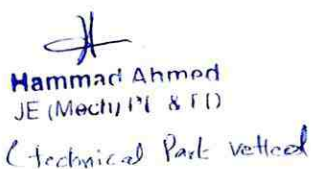 Hammad Ahmed
JE (Mech) PI & FD
(technical Part vetted